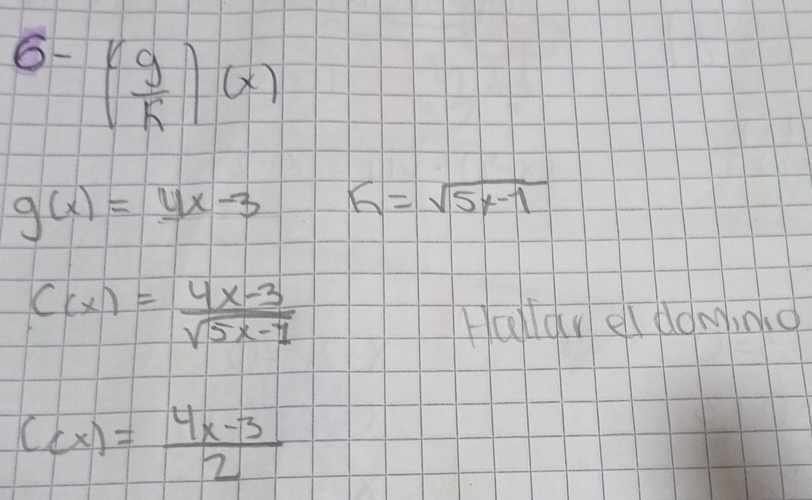 6- (g/h) (x)
g(x) = 4x-3 h = √5x-1
C(x) = 4x-3/√5x-1 Hallar el dominio
C(x) = 4x-3/2